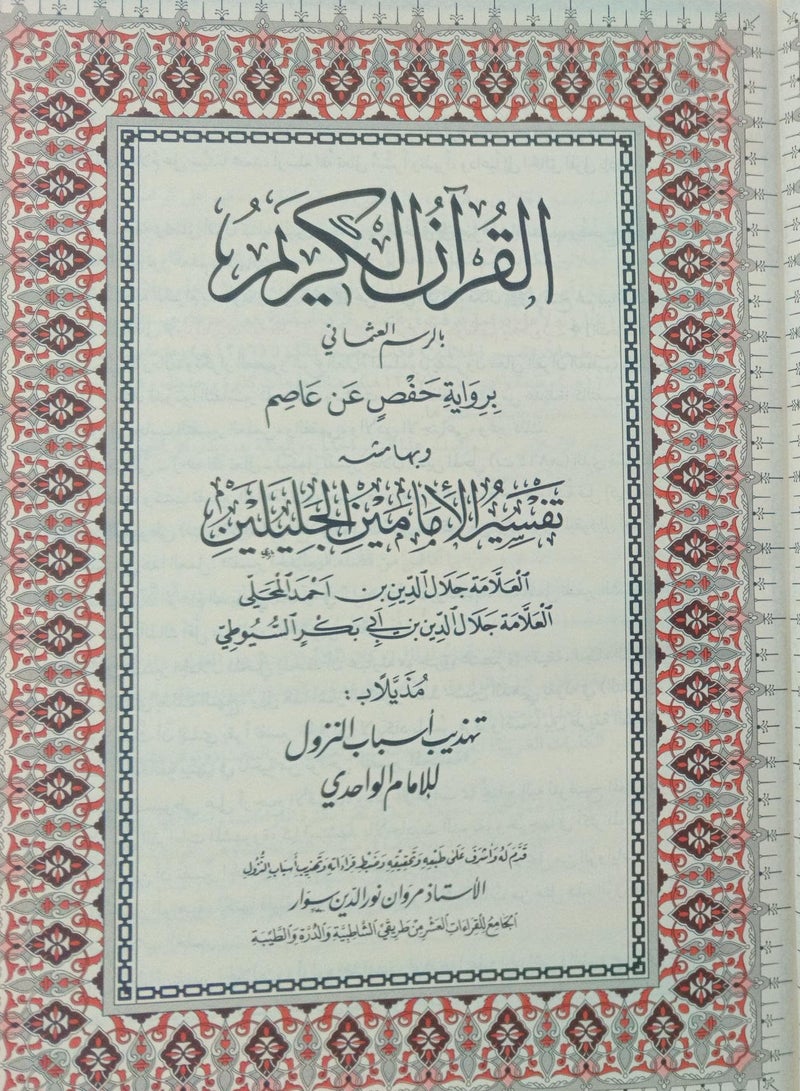 القُرآنُ الكَرِيمُ
بالرسم العثماني
بِرِوَايَةِ حَفْصٍ عَن عَاصِم
وبهامشه
تَفْسِيرُ الأِمَامَيْنِ الجَلِيلَيْنِ
العَلَّامَة جَلَالُ الدِّين بن احْمَد المَحَلِّي
العَلَّامَة جَلَالُ الدِّين بن أبي بَكْرِ السُّيُوطِيّ
مُذَيَّلاب :
تهذيب أسباب النزول
للإمام الواحدي
قَدَّمَ لَهُ وَأشْرَفَ عَلَى طَبْعِهِ وَتَحْقِيقِهِ وَضَبْطِ قِرَاءَاتِهِ وَتَهْذِيبِ أَسْبَابِ النُّزُولِ
الأستاذ مروان نور الدين سوار
الجَامِعُ لِلقِرَاءَات العَشْرِ مِنْ طَرِيقَيِ الشَّاطِبِيَّة وَالدُّرَّة وَالطَّيِّبَة